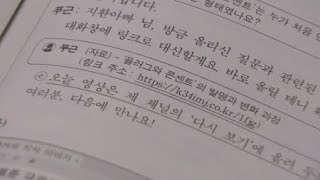 는 누가 처음
형태였나요?
뚜근: 지환아빠 님, 방금 올리신 질문과 관련된
대화창에 링크로 대신할게요. 바로 올릴 테니
뚜근 (자료) - 플러그와 콘센트의 발명과 변화 과정
(링크 주소: https://k34mj.co.kr/1fjg)
ⓒ 오늘 영상은 제 채널의 '다시 보기'에 올려 두
여러분, 다음에 만나요!